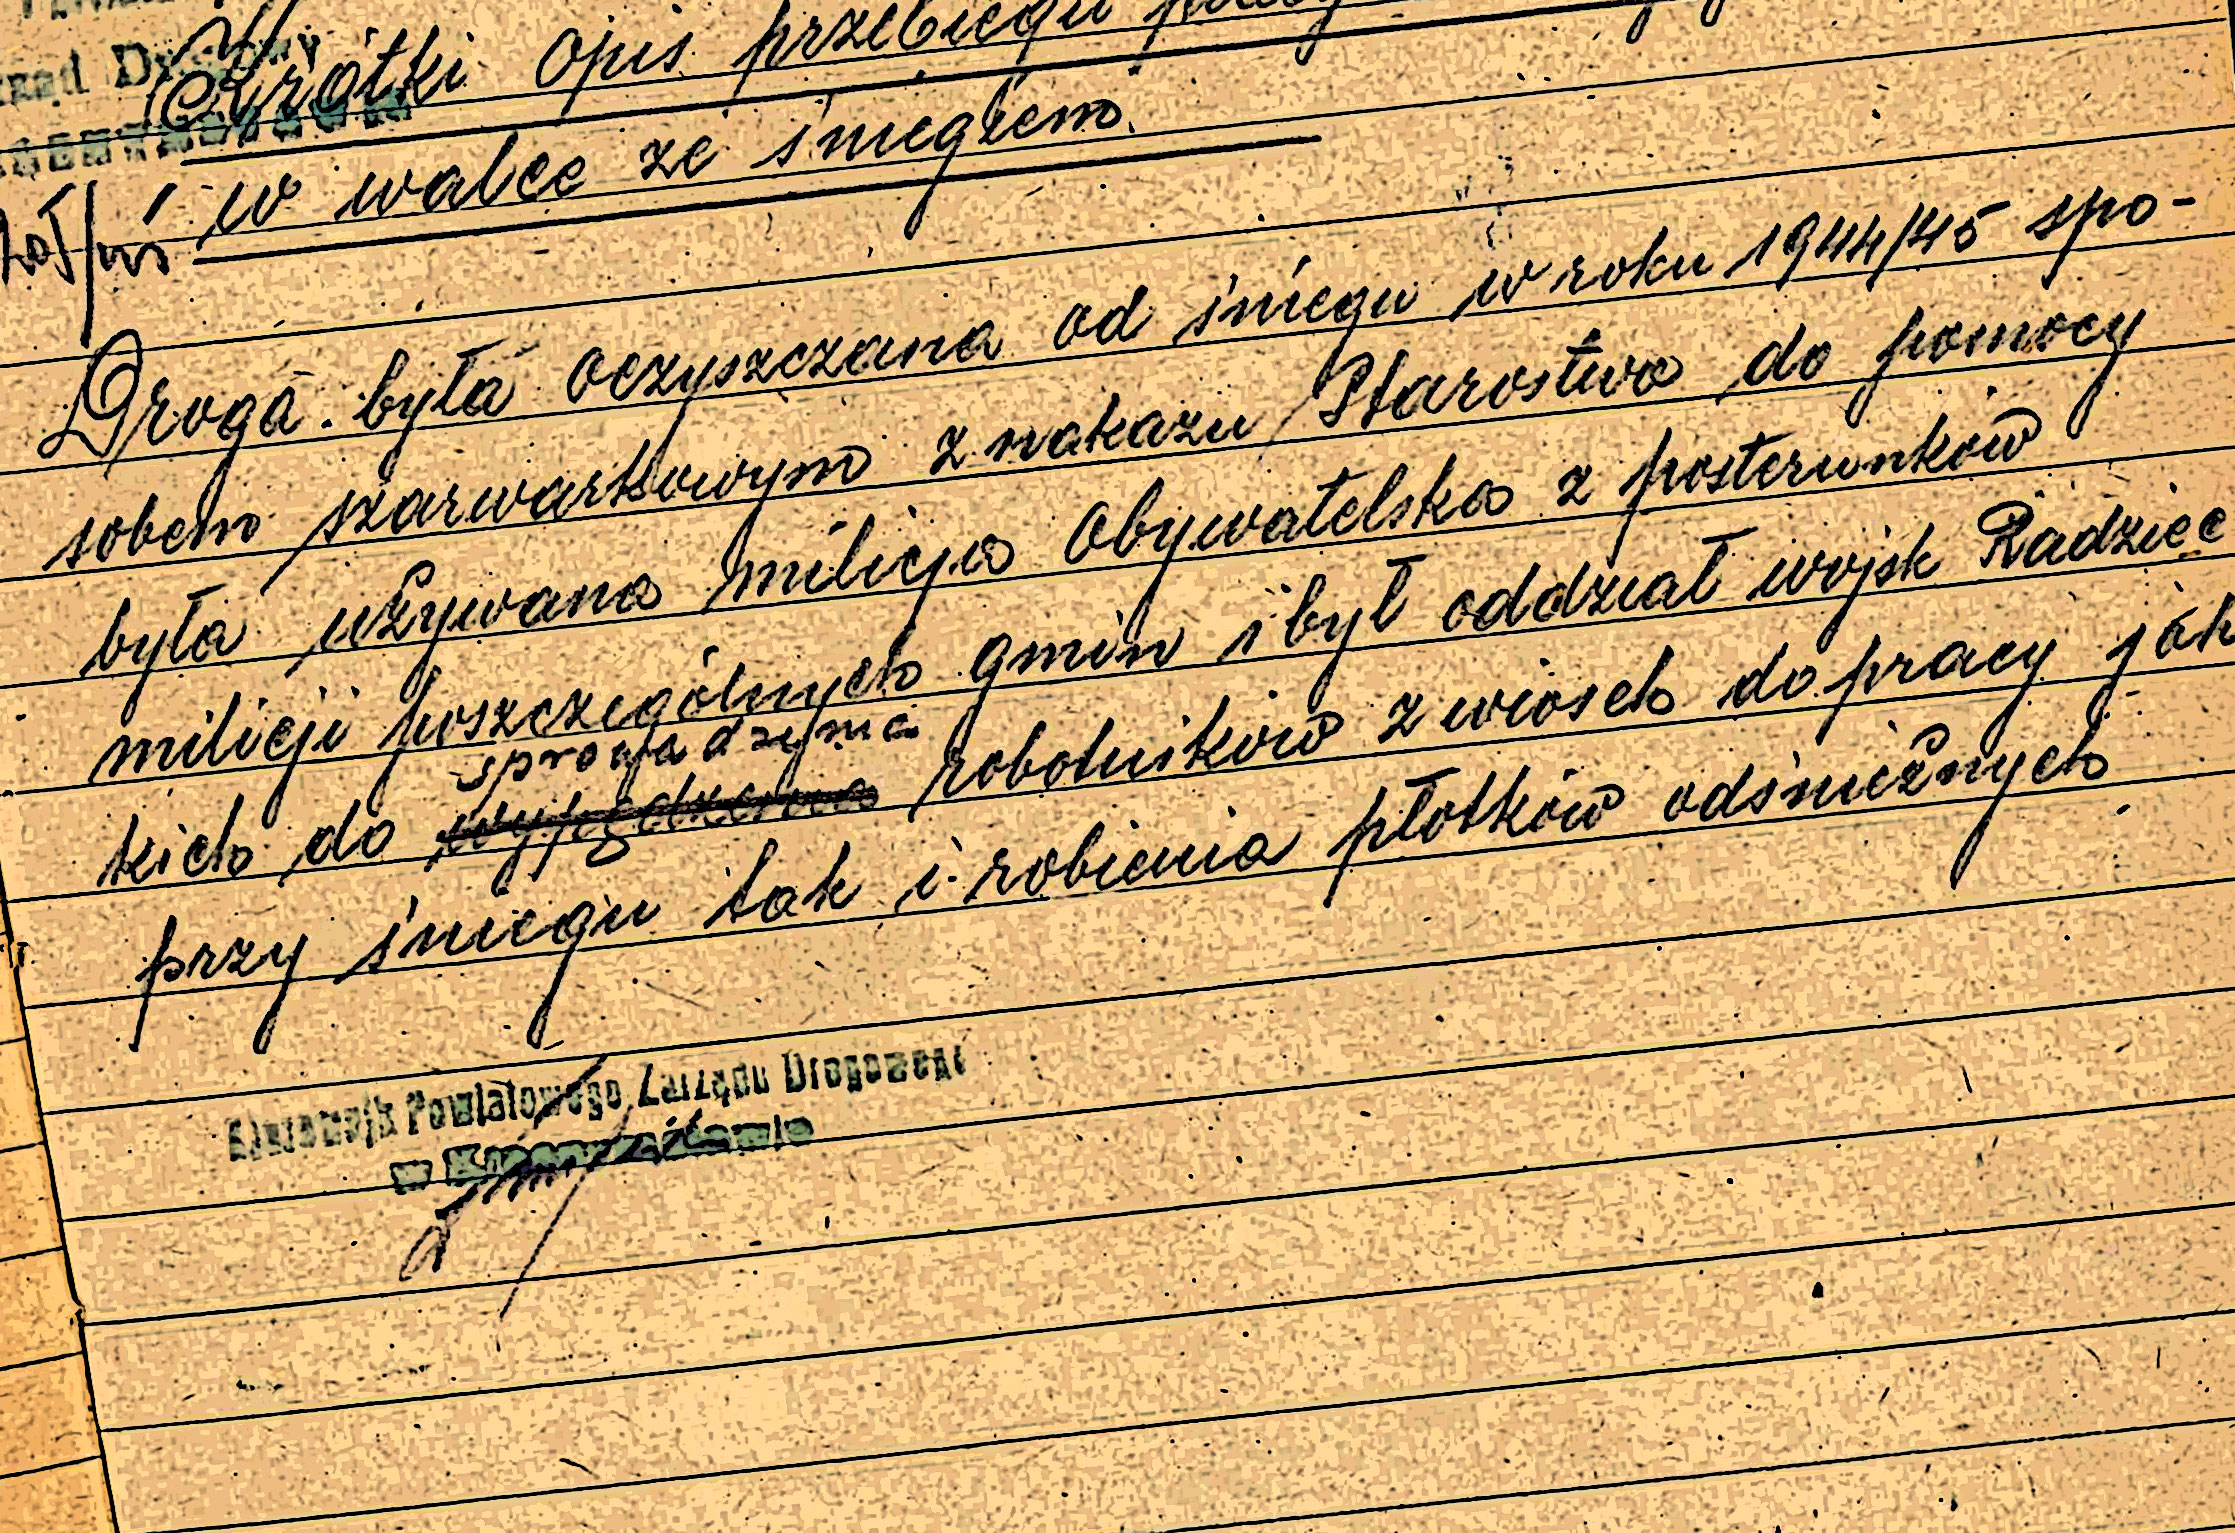 Krótki opis przebiegu pracy
w walce ze śniegiem.
Droga była oczyszczana od śniegu w roku 1944/45 spo-
sobem szarwarkowym z nakazu Starostwa do pomocy
była używana milicja Obywatelska z posterunków
milicji poszczególnych gmin i był oddział wojsk Radziec
kich do sprowadzynia robotników z wiosek do pracy jak
przy śniegu tak i robienia płotków odśnieżnych
Kierownik Powiatowego Zarządu Drogowego
w